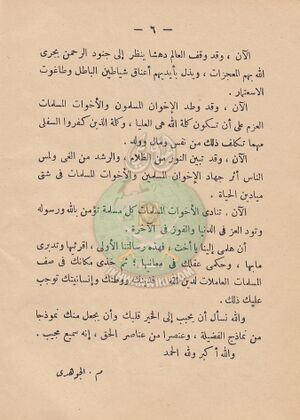 — ٦ —
الآن ، وقد وقف العالم دهشا ينظر إلى جنود الرحمن يجرى
الله بهم المعجزات ، ويذل بأيديهم أعناق شياطين الباطل وطاغوت
الاستعمار .
الآن ، وقد وطد الإخوان المسلمون والأخوات المسلمات
العزم على أن تكون كلمة الله هى العليا ، وكلمة الذين كفروا السفلى
مهما تكلف ذلك من نفس ومال وولد .
الآن ، وقد تبين النور من الظلام ، والرشد من الغى ولمس
الناس أثر جهاد الإخوان المسلمين والأخوات المسلمات فى شتى
ميادين الحياة .
الآن . تنادى الأخوات المسلمات كل مسلمة تؤمن بالله ورسوله
وتود العز فى الدنيا والفوز فى الآخرة .
أن هلمى إلينا يا أخت ، فهذه رسالتنا الأولى ، اقرئيها وتدبرى
مابها ، وحكمى عقلك فى معانيها ! ثم خذى مكانك فى صف
المسلمات العاملات لدين الله ووطنك وإنسانيتك توجب
عليك ذلك .
والله نسأل أن يجيب إلى الخير قلبك وأن يجعل منك نموذجا
من نماذج الفضيلة ، وعنصرا من عناصر الحق ، إنه سميع مجيب .
والله أكبر ولله الحمد
م . الجوهرى